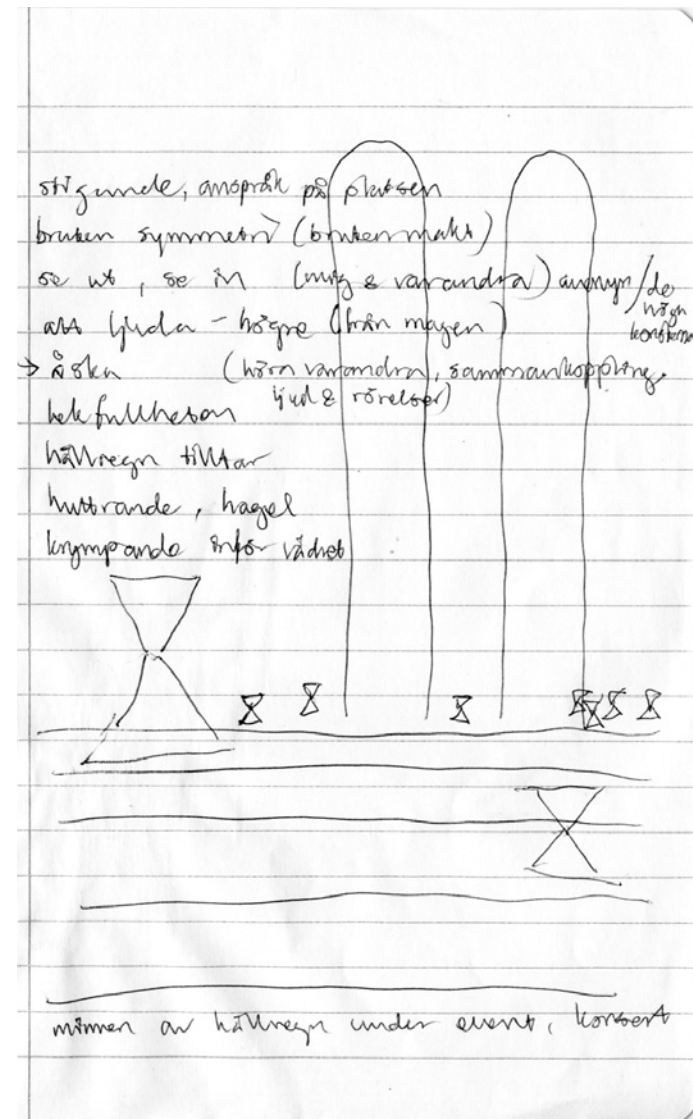 stigande, anspråk på platsen
bruten symmetri (bruten makt)
se ut, se in (mig & varandra) anonym / de höga konsterna
att ljuda - högre (från magen)
→ åska (höra varandra, sammankoppling
ljud & rörelser)
lekfullheten
hällregn tilltar
huttrande, hagel
krympande inför vädret
minnen av hällregn under event, konsert